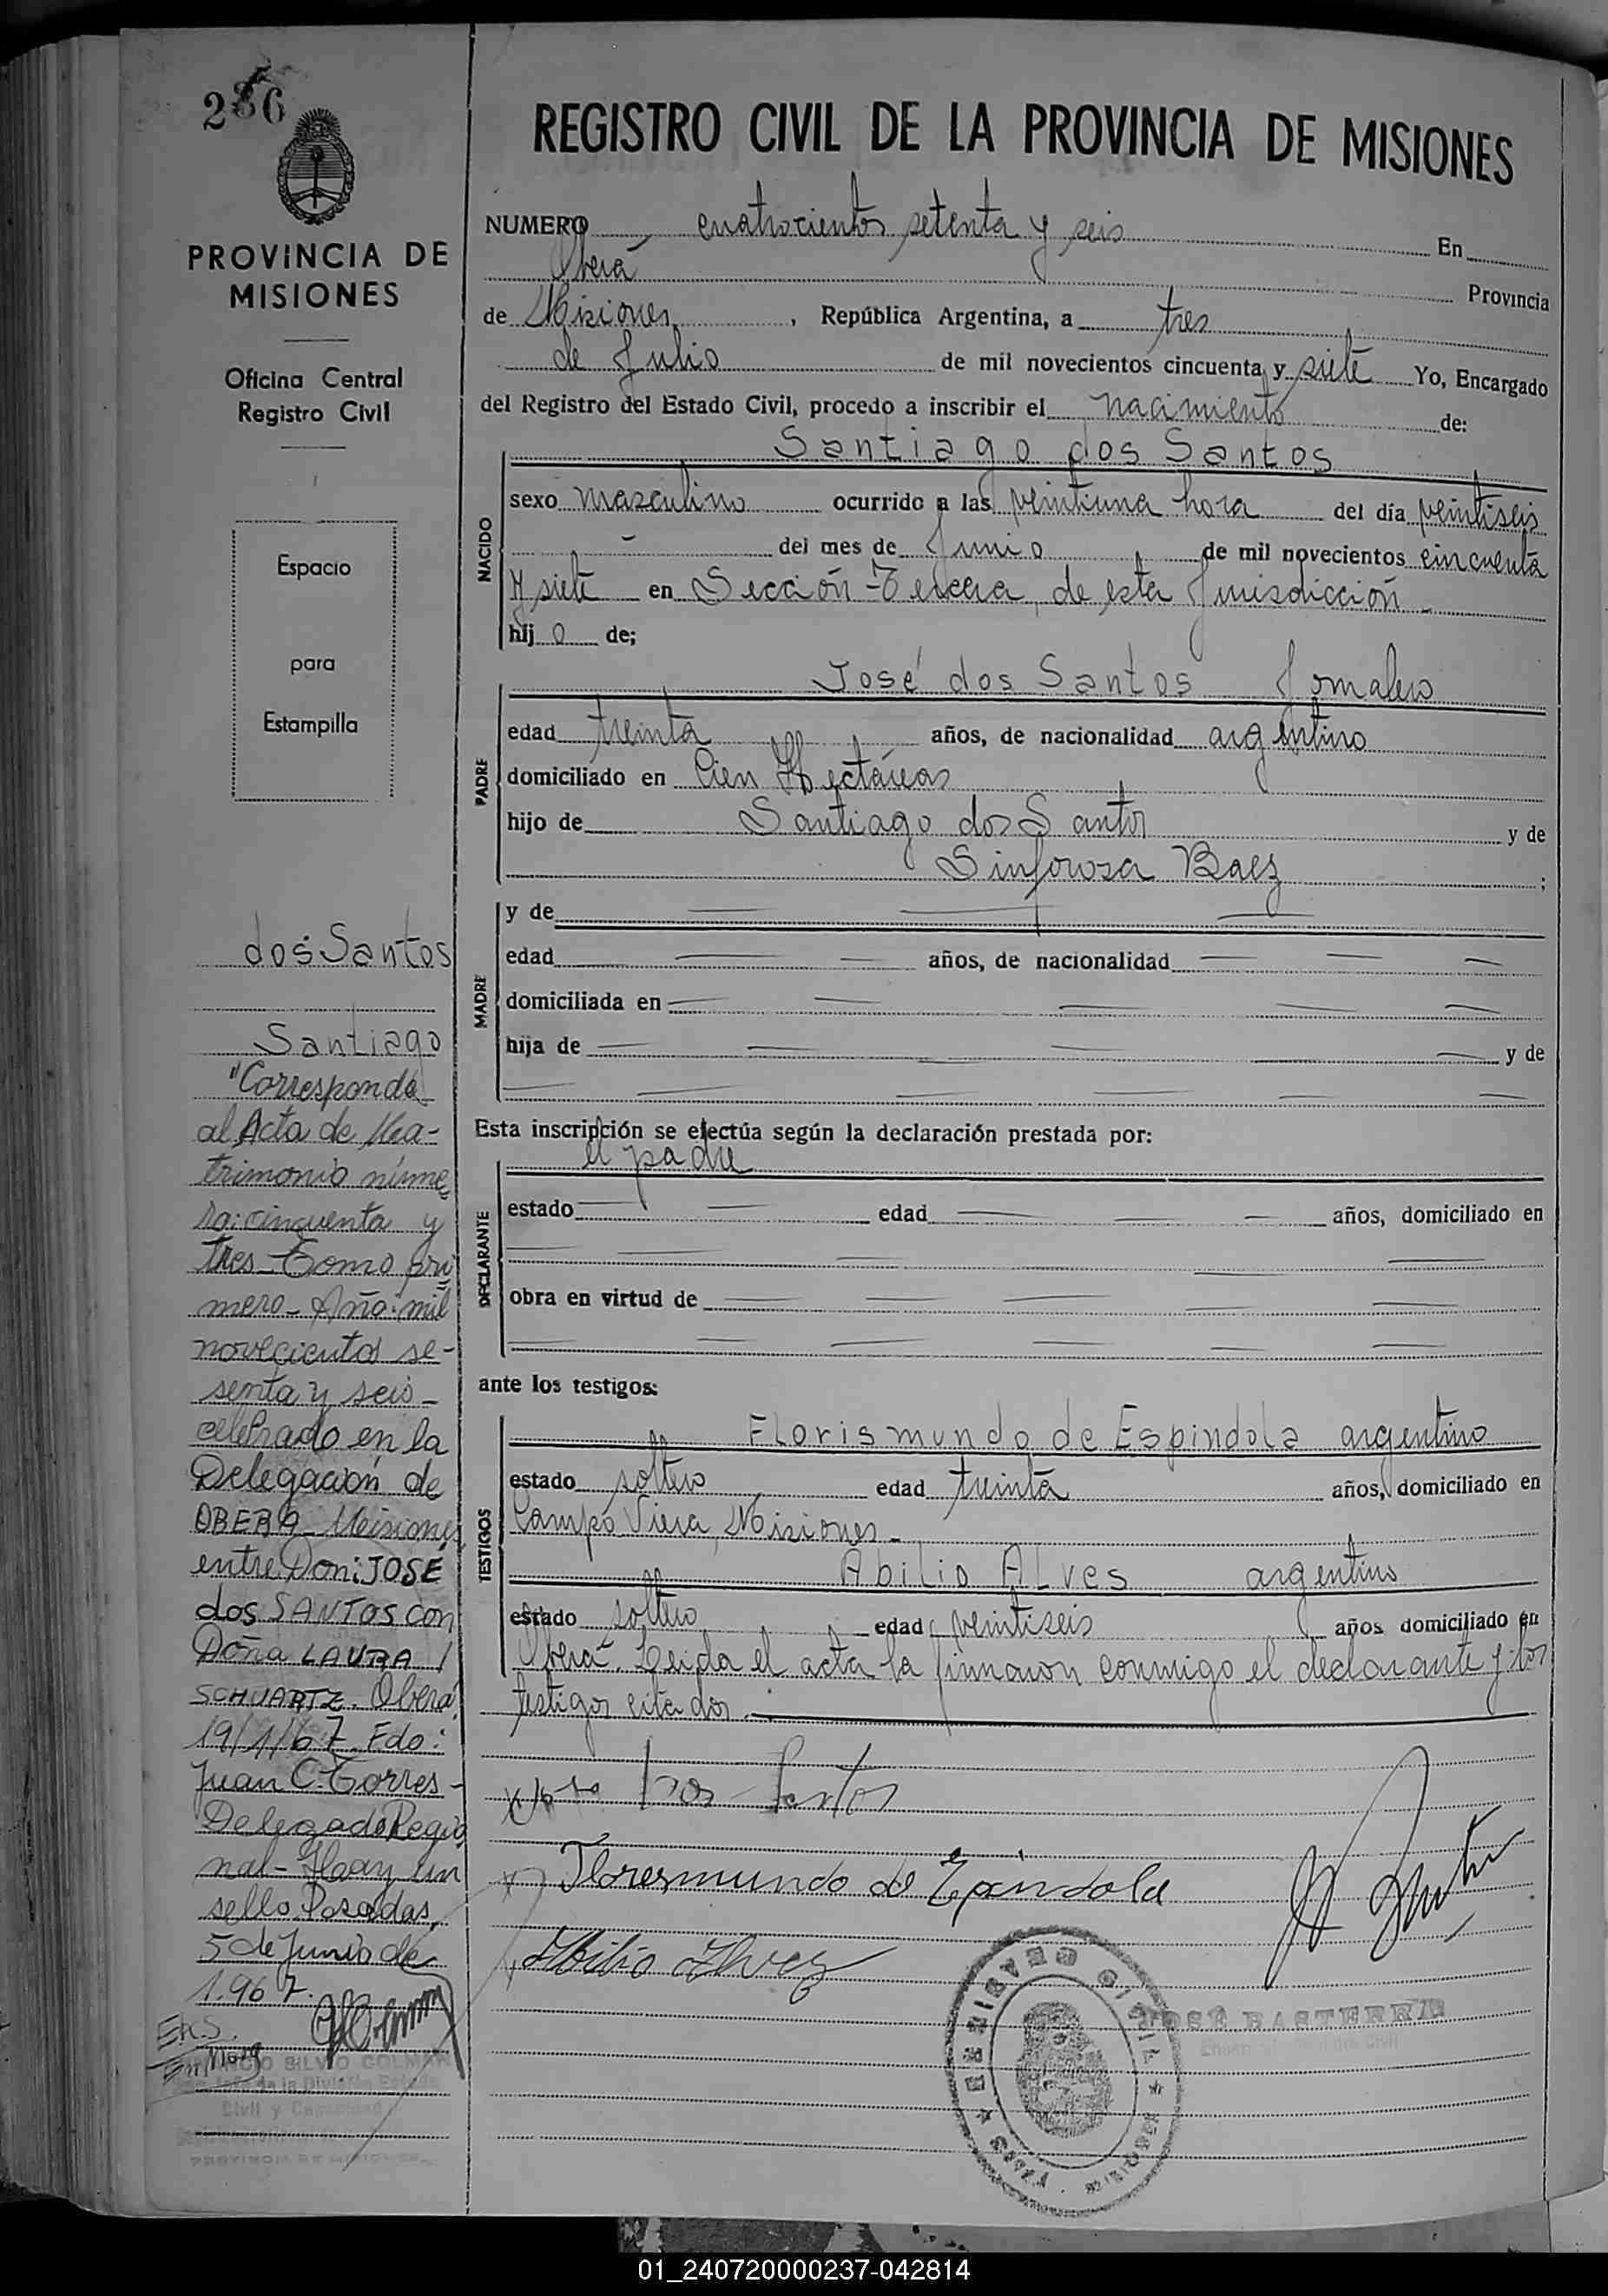 286
PROVINCIA DE
MISIONES
Oficina Central
Registro Civil
Espacio
para
Estampilla
dos Santos
Santiago
"Corresponde
al Acta de Ma-
trimonio núme
ro: cincuenta y
tres - Tomo pri
mero - Año: mil
novecientos se-
senta y seis -
celebrado en la
Delegación de
OBERA - Misiones
entre Don: JOSÉ
dos SANTOS con
Doña LAURA
SCHUARTZ. Oberá
19/1/67. Fdo:
Juan C. Torres -
Delegado Regio
nal - Hay un
sello. Posadas,
5 de Junio de
1.967.
SILVIO COLMAN
Civil y Capacidad
PROVINCIA DE MISIONES
REGISTRO CIVIL DE LA PROVINCIA DE MISIONES
NUMERO cuatrocientos setenta y seis En
Oberá Provincia
de Misiones, República Argentina, a tres
de Julio de mil novecientos cincuenta y siete Yo, Encargado
del Registro del Estado Civil, procedo a inscribir el nacimiento de:
Santiago dos Santos
NACIDO
sexo masculino ocurrido a las veintiuna hora del día veintiseis
- del mes de Junio de mil novecientos cincuenta
y siete en Sección Tercera, de esta Jurisdicción -
hij o de;
José dos Santos Jornalero
PADRE
edad treinta años, de nacionalidad argentino
domiciliado en Cien Hectáreas
hijo de Santiago dos Santos y de
Sinforosa Baez ;
MADRE
y de
edad años, de nacionalidad
domiciliada en
hija de y de
Esta inscripción se efectúa según la declaración prestada por:
el padre
DECLARANTE
estado edad años, domiciliado en
obra en virtud de
ante los testigos:
Florismundo de Espindola argentino
TESTIGOS
estado soltero edad treinta años, domiciliado en
Campo Viera, Misiones -
Abilio Alves argentino
estado soltero edad veintiseis años domiciliado en
Oberá. Leida el acta la firmaron conmigo el declarante y los
testigos citados.
Jose Dos Santos
Floresmundo de Epindola
Abilio Alvez
REGISTRO CIVIL
OBERA
JOSÉ BASTERRA
01_240720000237-042814